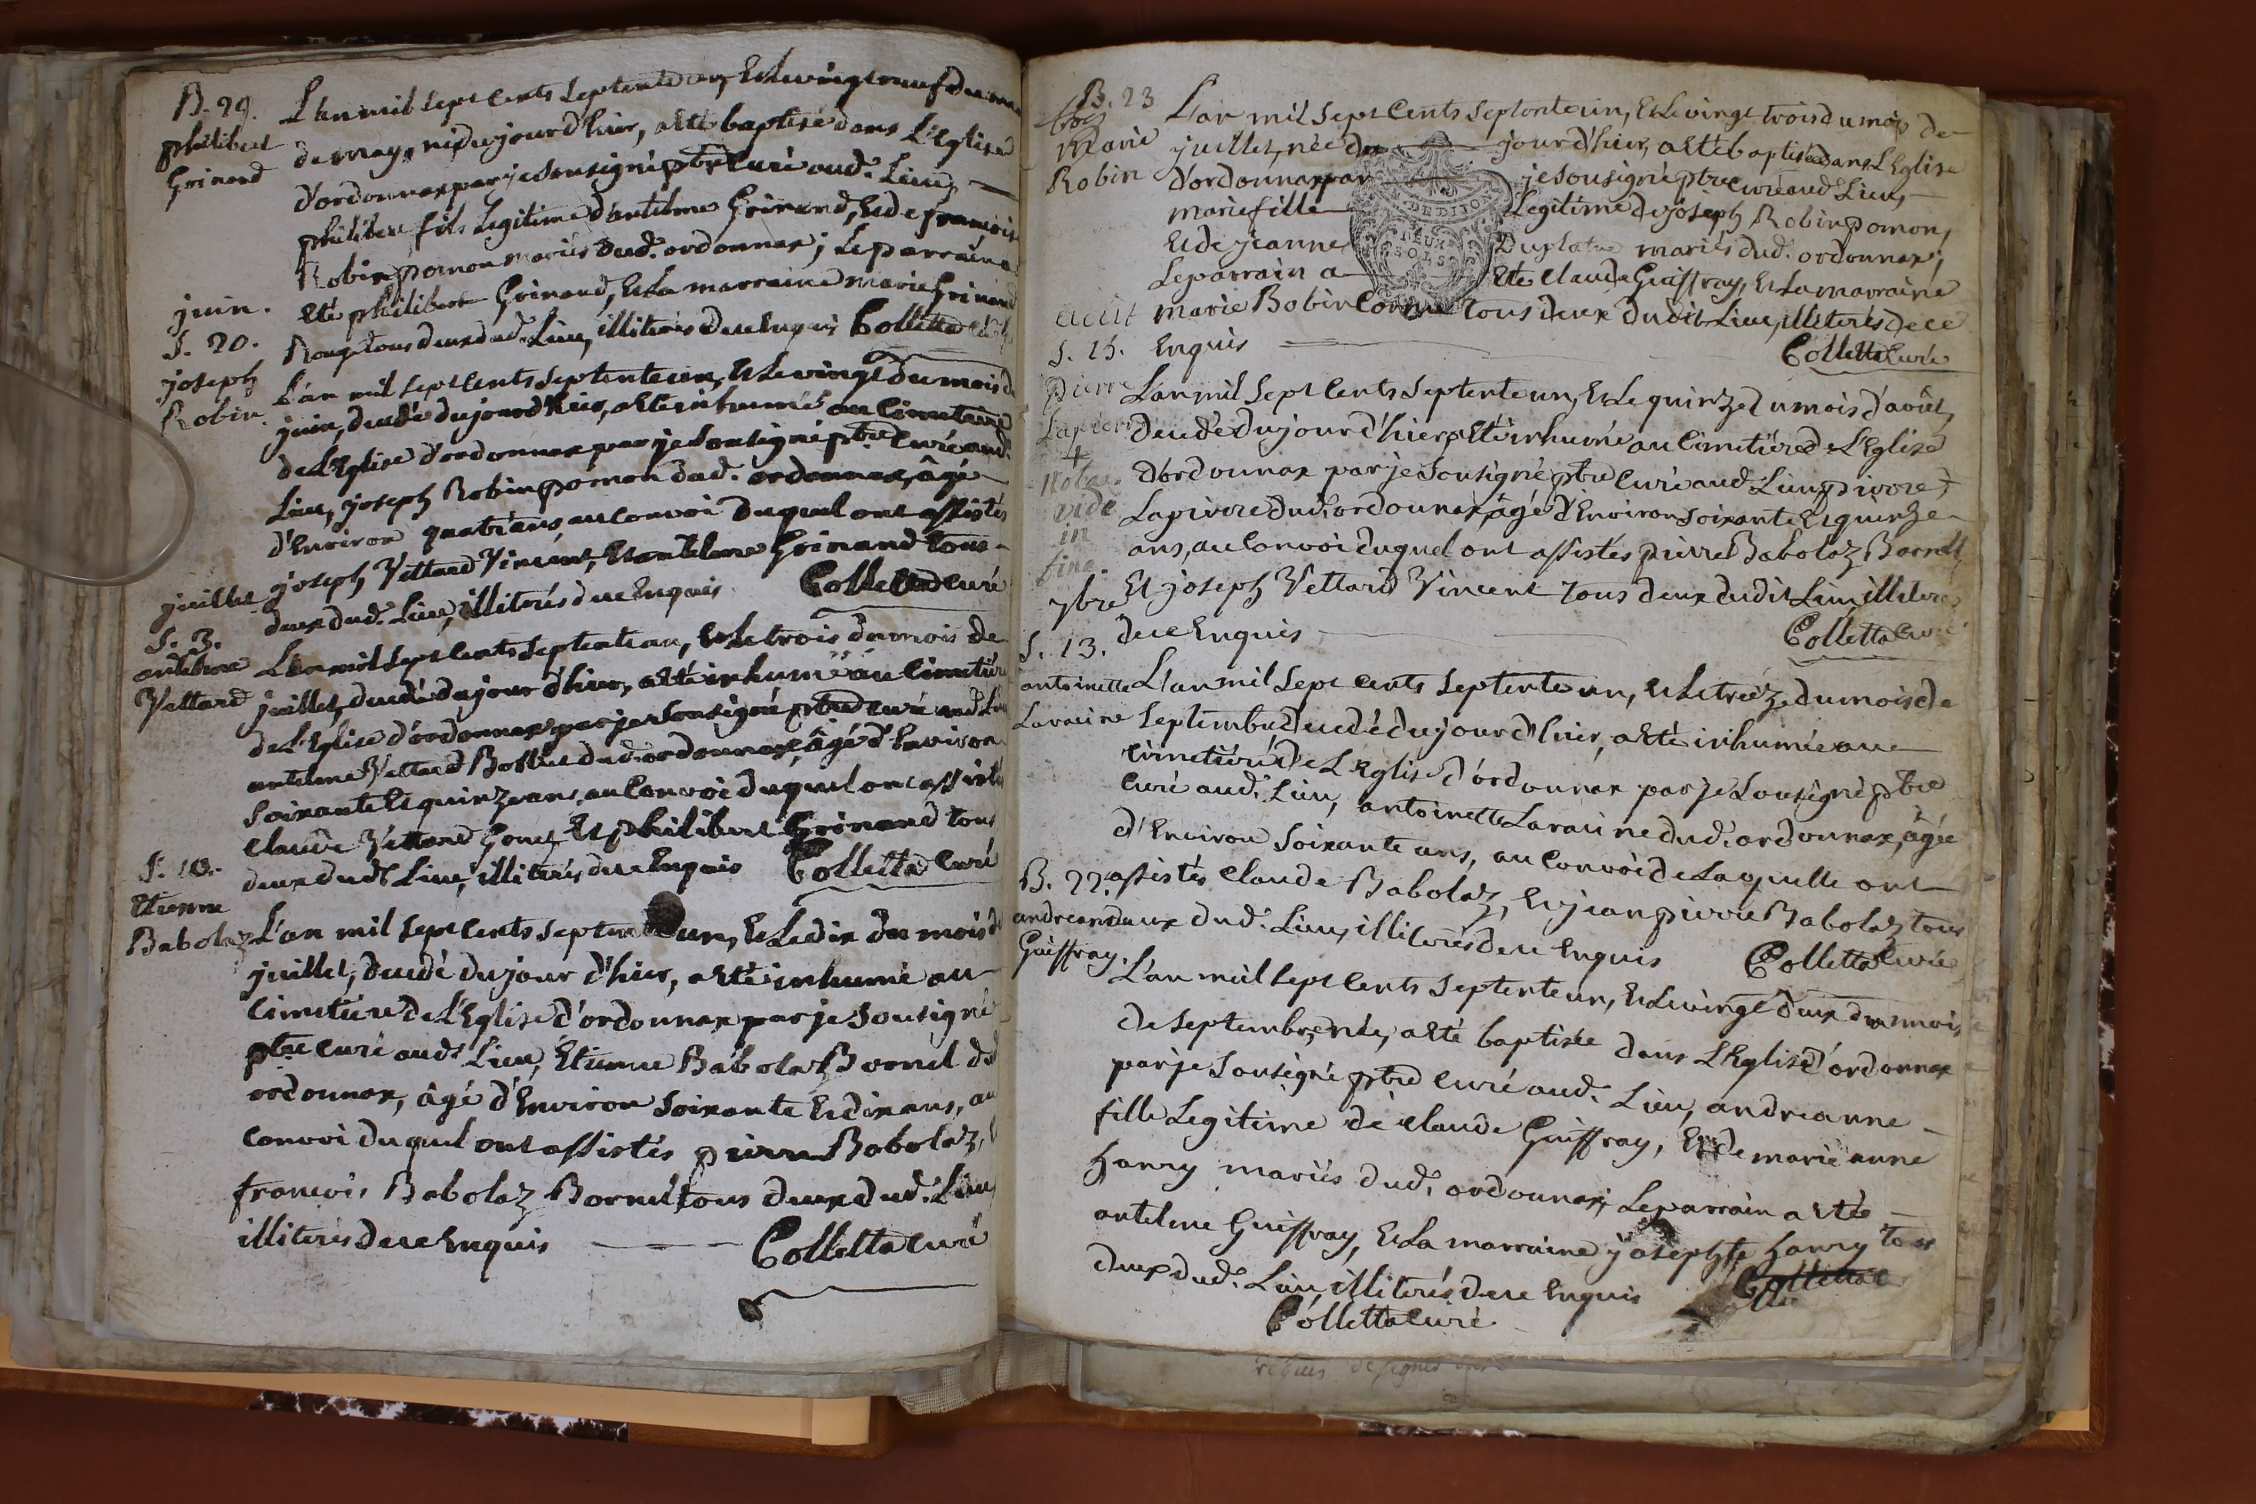 B. 29.
philibert
Grinand
L'an mil sept Cents septente un, Et Le vingt neuf du mois
de may, né du jour d'hier, a Eté baptisé dans L'Eglise
d'ordonnax par je sousigné ptre Curé aud. Lieu,
philibert fils Legitime d'antelme Grinand, Et de francoise
Robin pomon mariés dud. ordonnax; Le parrain a
Eté philibert Grinand, Et La marraine marie Grinand
Rouge tous deux dud. Lieu, illiterés de ce Enquis Colletta Curé
juin.
S. 20.
joseph
Robin.
L'an mil sept Cents septente un, Et Le vingt du mois de
juin, decedé du jour d'hier, a Eté inhumé au Cimetiere
de L'Eglise d'ordonnax par je sousigné ptre Curé aud.
Lieu, joseph Robin pomon dud. ordonnax, âgé
d'Environ quatr'ans au Convoi duquel ont assistés
joseph Vettard Vincent, Et antelme Grinand tous
deux dud. Lieu, illiterés de ce Enquis Colletta Curé
juillet
S. 3.
antelme
Vettard
L'an mil sept Cents septente un, Et Le trois du mois de
juillet, decedé du jour d'hier, a Eté inhumé au Cimetiere
de L'Eglise d'ordonnax par je sousigné ptre Curé aud. Lieu
antelme Vettard Bollet dud. ordonnax, âgé d'Environ
soixante Et quinze ans, au Convoi duquel ont assistés
Claude Vettard Gonet Et philibert Grinand tous
deux dudt Lieu, illiterés de ce Enquis Colletta Curé
S. 10.
Etienne
Babolaz
L'an mil sept Cents septente un, Et Le dix du mois de
juillet, decedé du jour d'hier, a Eté inhumé au
Cimetiere de L'Eglise d'ordonnax par je sousigné
ptre Curé aud. Lieu, Etienne Babolaz Bornel dud
ordonnax, âgé d'Environ soixante Et dix ans, au
Convoi duquel ont assistés pierre Babolaz,
francois Babolaz Bornel tous deux dud. Lieu
illiterés de ce Enquis Colletta Curé
B. 23
marie
Robin
L'an mil sept Cents septente un, Et Le vingt trois du mois de
juillet, née du jour d'hier, a Eté baptisée dans L'Eglise
d'ordonnax par je sousigné ptre curé aud Lieu,
marie fille Legitime de joseph Robin pomon,
Et de jeanne mariés dud. ordonnax;
Le parrain a Eté Claude Guiffray, Et La marraine
marie Robin tous deux dudit Lieu, illiterés de ce
Enquis Colletta Curé
DEUX
SOLS
août
S. 15.
pierre
Lapierre
+
nota.
vide
in
fine.
L'an mil sept Cents septente un, Et Le quinze du mois d'août,
decedé du jour d'hier, a Eté inhumé au Cimetiere de L'Eglise
d'ordonnax par je sousigné ptre Curé aud. Lieu, pierre +
Lapierre dud. ordonnax, âgé d'Environ soixante Et quinze
ans, au Convoi duquel ont assistés pierre Babolaz Bornel,
Et joseph Vettard Vincent tous deux dudit Lieu, illiterés
de ce Enquis Colletta Curé
7bre
S. 13.
antoinette
Laracine
L'an mil sept Cents septente un, Et Le treize du mois de
septembre, decedé du jour d'hier, a Eté inhumée au
cimetiere de L'Eglise d'ordonnax par je sousigné ptre
Curé aud. Lieu, antoinette Laracine dud. ordonnax, âgée
d'Environ soixante ans, au Convoi de Laquelle ont
assistés Claude Babolaz, Et jean pierre Babolaz tous
deux dud. Lieu, illiterés de ce Enquis Colletta Curé
B. 22.
andreanne
Guiffray.
L'an mil sept Cents septente un, Et Le vingt deux du mois
de septembre, née, a Eté baptisée dans L'Eglise d'ordonnax
par je sousigné ptre Curé aud. Lieu, andreanne
fille Legitime de claude Guiffray, Et de marie anne
hanry mariés dud. ordonnax; Le parrain a Eté
antelme Guiffray, Et La marraine josephte hanry tous
deux dud. Lieu illiterés de ce Enquis
Colletta Curé